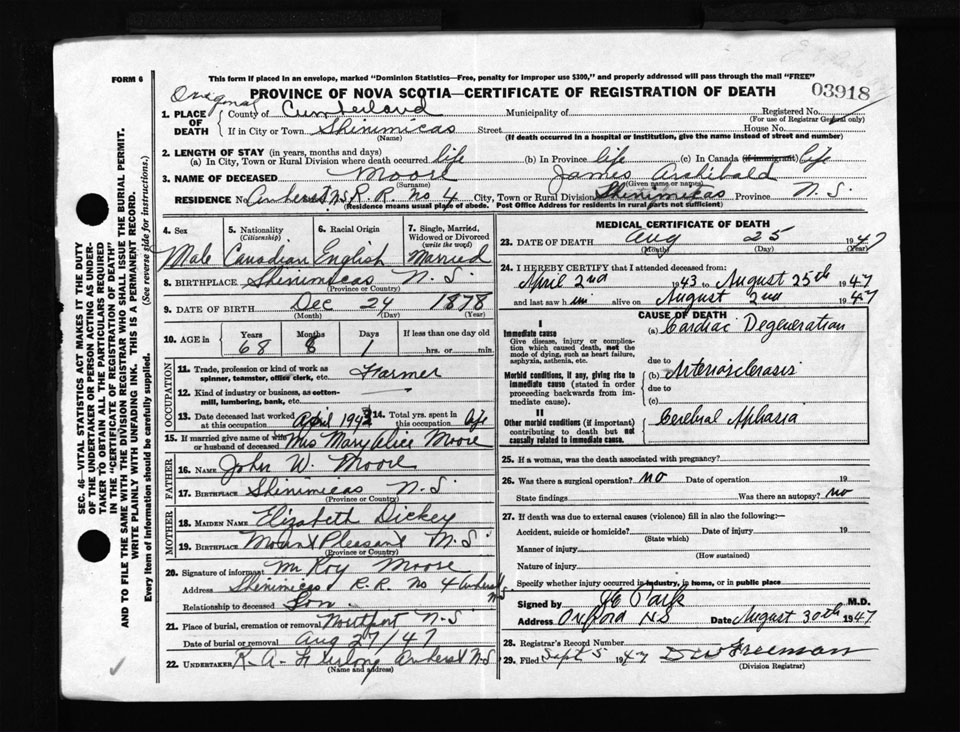 FORM 6
This form if placed in an envelope, marked "Dominion Statistics—Free, penalty for improper use $300," and properly addressed will pass through the mail "FREE"
PROVINCE OF NOVA SCOTIA—CERTIFICATE OF REGISTRATION OF DEATH
03918
Original
1. PLACE OF DEATH
County of Cumberland Municipality of Registered No.
(For use of Registrar General only)
If in City or Town Shinimicas Street House No.
(Name) (If death occurred in a hospital or institution, give the name instead of street and number)
2. LENGTH OF STAY (in years, months and days)
(a) In City, Town or Rural Division where death occurred life (b) In Province life (c) In Canada (if immigrant) life
3. NAME OF DECEASED Moore James Archibald
(Surname) (Given name or names)
RESIDENCE No. Amherst N.S. R.R. No 4 City, Town or Rural Division Shinimicas Province N.S.
(Residence means usual place of abode. Post Office Address for residents in rural parts not sufficient)
4. Sex 5. Nationality (Citizenship) 6. Racial Origin 7. Single, Married, Widowed or Divorced (write the word)
Male Canadian English Married
8. BIRTHPLACE Shinimicas N.S.
(Province or Country)
9. DATE OF BIRTH Dec 24 1878
(Month) (Day) (Year)
10. AGE in Years Months Days If less than one day old
68 8 1 hrs. or min.
OCCUPATION
11. Trade, profession or kind of work as spinner, teamster, office clerk, etc. Farmer
12. Kind of industry or business, as cotton-mill, lumbering, bank, etc. —
13. Date deceased last worked at this occupation April 1943 14. Total yrs. spent in this occupation life
15. If married give name of wife or husband of deceased Mrs Mary Alice Moore
FATHER
16. NAME John W. Moore
17. BIRTHPLACE Shinimicas N.S.
(Province or Country)
MOTHER
18. MAIDEN NAME Elizabeth Dickey
19. BIRTHPLACE Mount Pleasant N.S.
(Province or Country)
20. Signature of informant Mr Roy Moore
Address Shinimicas R.R. No 4 Amherst N.S.
Relationship to deceased Son.
21. Place of burial, cremation or removal Northport N.S
Date of burial or removal Aug 27/47
22. UNDERTAKER R. A. Furlong Amherst N.S
(Name and address)
MEDICAL CERTIFICATE OF DEATH
23. DATE OF DEATH Aug 25 1947
(Month) (Day) (Year)
24. I HEREBY CERTIFY that I attended deceased from:
April 2nd 1943 to August 25th 1947
and last saw him alive on August 2nd 1947
CAUSE OF DEATH
I
Immediate cause (a) Cardiac Degeneration
Give disease, injury or complication which caused death, not the mode of dying, such as heart failure, asphyxia, asthenia, etc.
due to
Morbid conditions, if any, giving rise to immediate cause (stated in order proceeding backwards from immediate cause). (b) Arteriosclerosis
due to
(c)
II
Other morbid conditions (if important) contributing to death but not causally related to immediate cause. Cerebral Aphasia
25. If a woman, was the death associated with pregnancy?
26. Was there a surgical operation? no Date of operation 19
State findings Was there an autopsy? no
27. If death was due to external causes (violence) fill in also the following:—
Accident, suicide or homicide? Date of injury 19
(State which)
Manner of injury
(How sustained)
Nature of injury
Specify whether injury occurred in industry, in home, or in public place
Signed by M.D.
Address Oxford NS Date August 30th 1947
28. Registrar's Record Number
29. Filed Sept 5 1947 D W Freeman
(Division Registrar)
SEC. 46—VITAL STATISTICS ACT MAKES IT THE DUTY
OF THE UNDERTAKER OR PERSON ACTING AS UNDERTAKER TO OBTAIN ALL THE PARTICULARS REQUIRED
IN THE "CERTIFICATE OF REGISTRATION OF DEATH"
AND TO FILE THE SAME WITH THE DIVISION REGISTRAR WHO SHALL ISSUE THE BURIAL PERMIT.
WRITE PLAINLY WITH UNFADING INK. THIS IS A PERMANENT RECORD.
Every item of information should be carefully supplied. (See reverse side for instructions.)